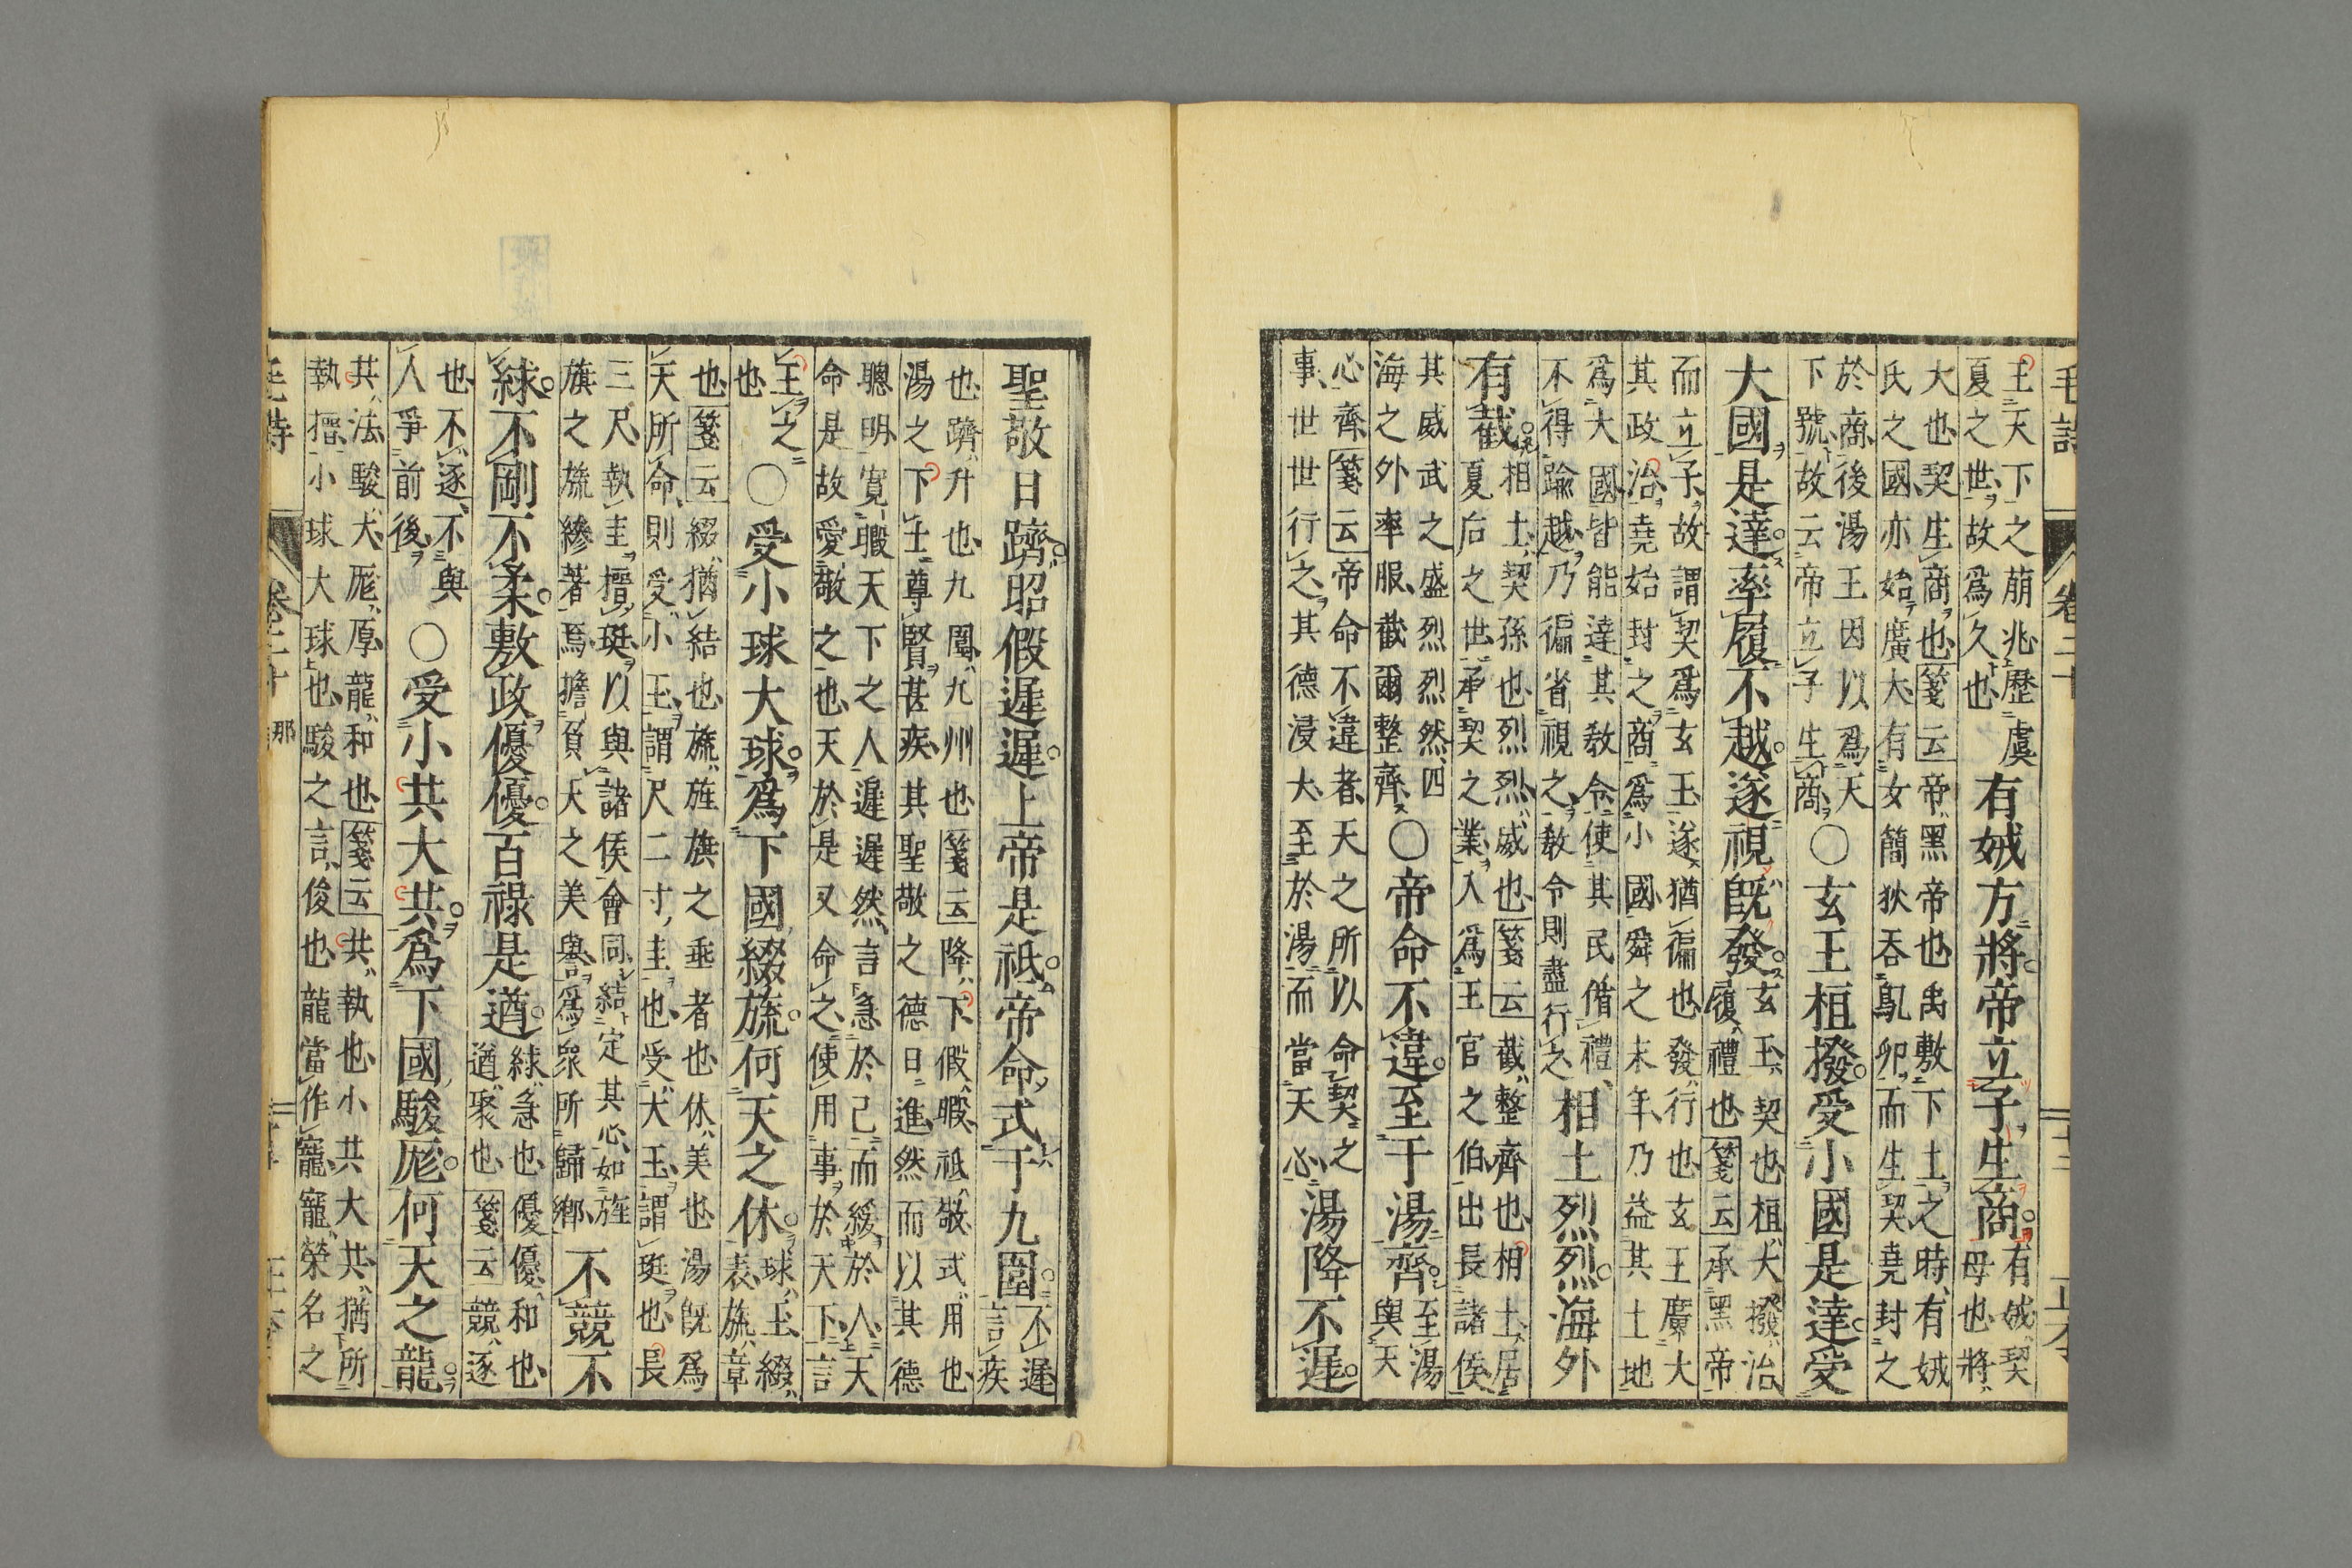 毛詩 卷二十
王天下之崩兆歷虞
夏之世故爲久也
有娀方將帝立子生商
有娀契
母也將
大也契生商也箋云帝黑帝也禹敷下土之時有娀
氏之國亦始廣大有女簡狄吞鳦卵而生契堯封之
於商後湯王因以爲天
下號故云帝立子生商
○玄王桓撥受小國是達受
大國是達率履不越遂視旣發
玄王契也桓大撥治
履禮也箋云承黑帝
而立子故謂契爲玄王遂猶徧也發行也玄王廣大
其政治堯始封之商爲小國舜之末年乃益其土地
爲大國皆能達其敎令使其民循禮
不得踰越乃徧省視之敎令則盡行之
相土烈烈海外
有截
相土契孫也烈烈威也箋云截整齊也相土居
夏后之世承契之業入爲王官之伯出長諸侯
其威武之盛烈烈然四
海之外率服截爾整齊
○帝命不違至于湯齊
至湯
與天
心齊箋云帝命不違者天之所以命契之
事世世行之其德浸大至於湯而當天心
湯降不遲
聖敬日躋昭假遲遲上帝是祗帝命式于九圍
不遲
言疾
也躋升也九圍九州也箋云降下假暇祗敬式用也
湯之下士尊賢甚疾其聖敬之德日進然而以其德
聰明寬暇天下之人遲遲然言急於己而緩於人天
命是故愛敬之也天於是又命之使用事於天下言
王之
也
○受小球大球爲下國綴旒何天之休
球玉綴
表旒章
也箋云綴猶結也旒旌旗之垂者也休美也湯旣爲
天所命則受小玉謂尺二寸圭也受大玉謂珽也長
三尺執圭搢珽以與諸侯會同結定其心如旌
旗之旒縿著焉擔負天之美譽爲衆所歸鄉
不競不
絿不剛不柔敷政優優百祿是遒
絿急也優優和也
遒聚也箋云競逐
也不逐不與
人爭前後
○受小共大共爲下國駿厖何天之龍
共法駿大厖厚龍和也箋云共執也小共大共猶所
執搢小球大球也駿之言俊也龍當作寵寵榮名之
毛詩 卷二十 那